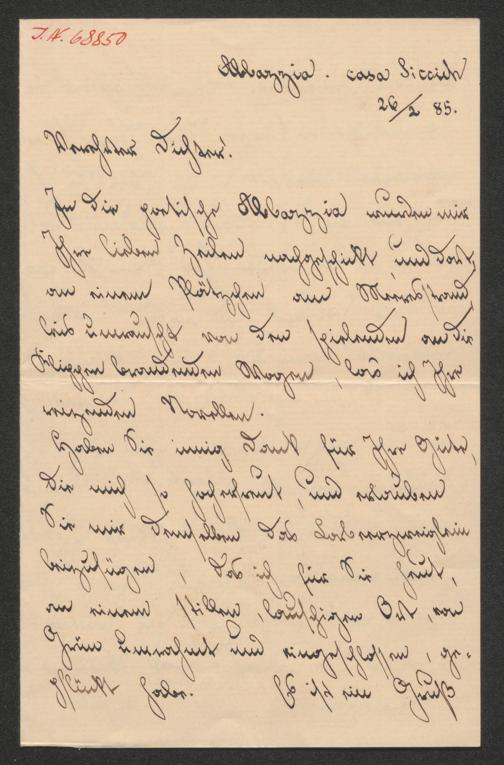 J.N. 68850
Abbazzia. casa Siccich
26/2 85.
Verehrter Dichter!
In die poetische Abbazzia wurden mir
Ihre lieben Zeilen nachgeschickt, und dort
an einem Plätzchen am Meeresstrand,
leis umrauscht von den spielenden an die
Klippen brandenden Wogen, las ich Ihre
reizenden Novellen.
Haben Sie innig Dank für Ihre Güte,
die mich so hocherfreut, und erlauben
Sie mir denselben das Lorbeerzweiglein
beizufügen, das ich für Sie heut,
an einem stillen, lauschigen Ort, von
Grün umrahmt und eingeschlossen, ge-
pflückt habe. Es ist ein Gruß